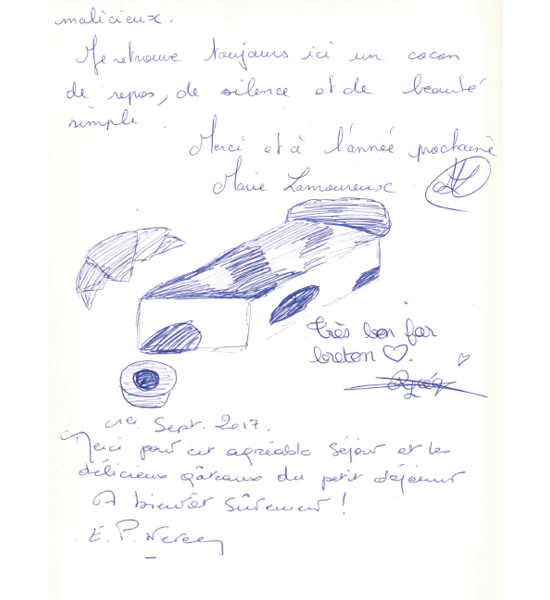 malicieux.
Je retrouve toujours ici un cocon
de repos, de silence et de beauté
simple.
Merci et à l'année prochaine
Marie Lamoureux
Très bon far
breton ♡.
Sept. 2017.
Merci pour cet agréable séjour et les
délicieux gâteaux du petit déjeuner
A bientôt sûrement !
E. P.